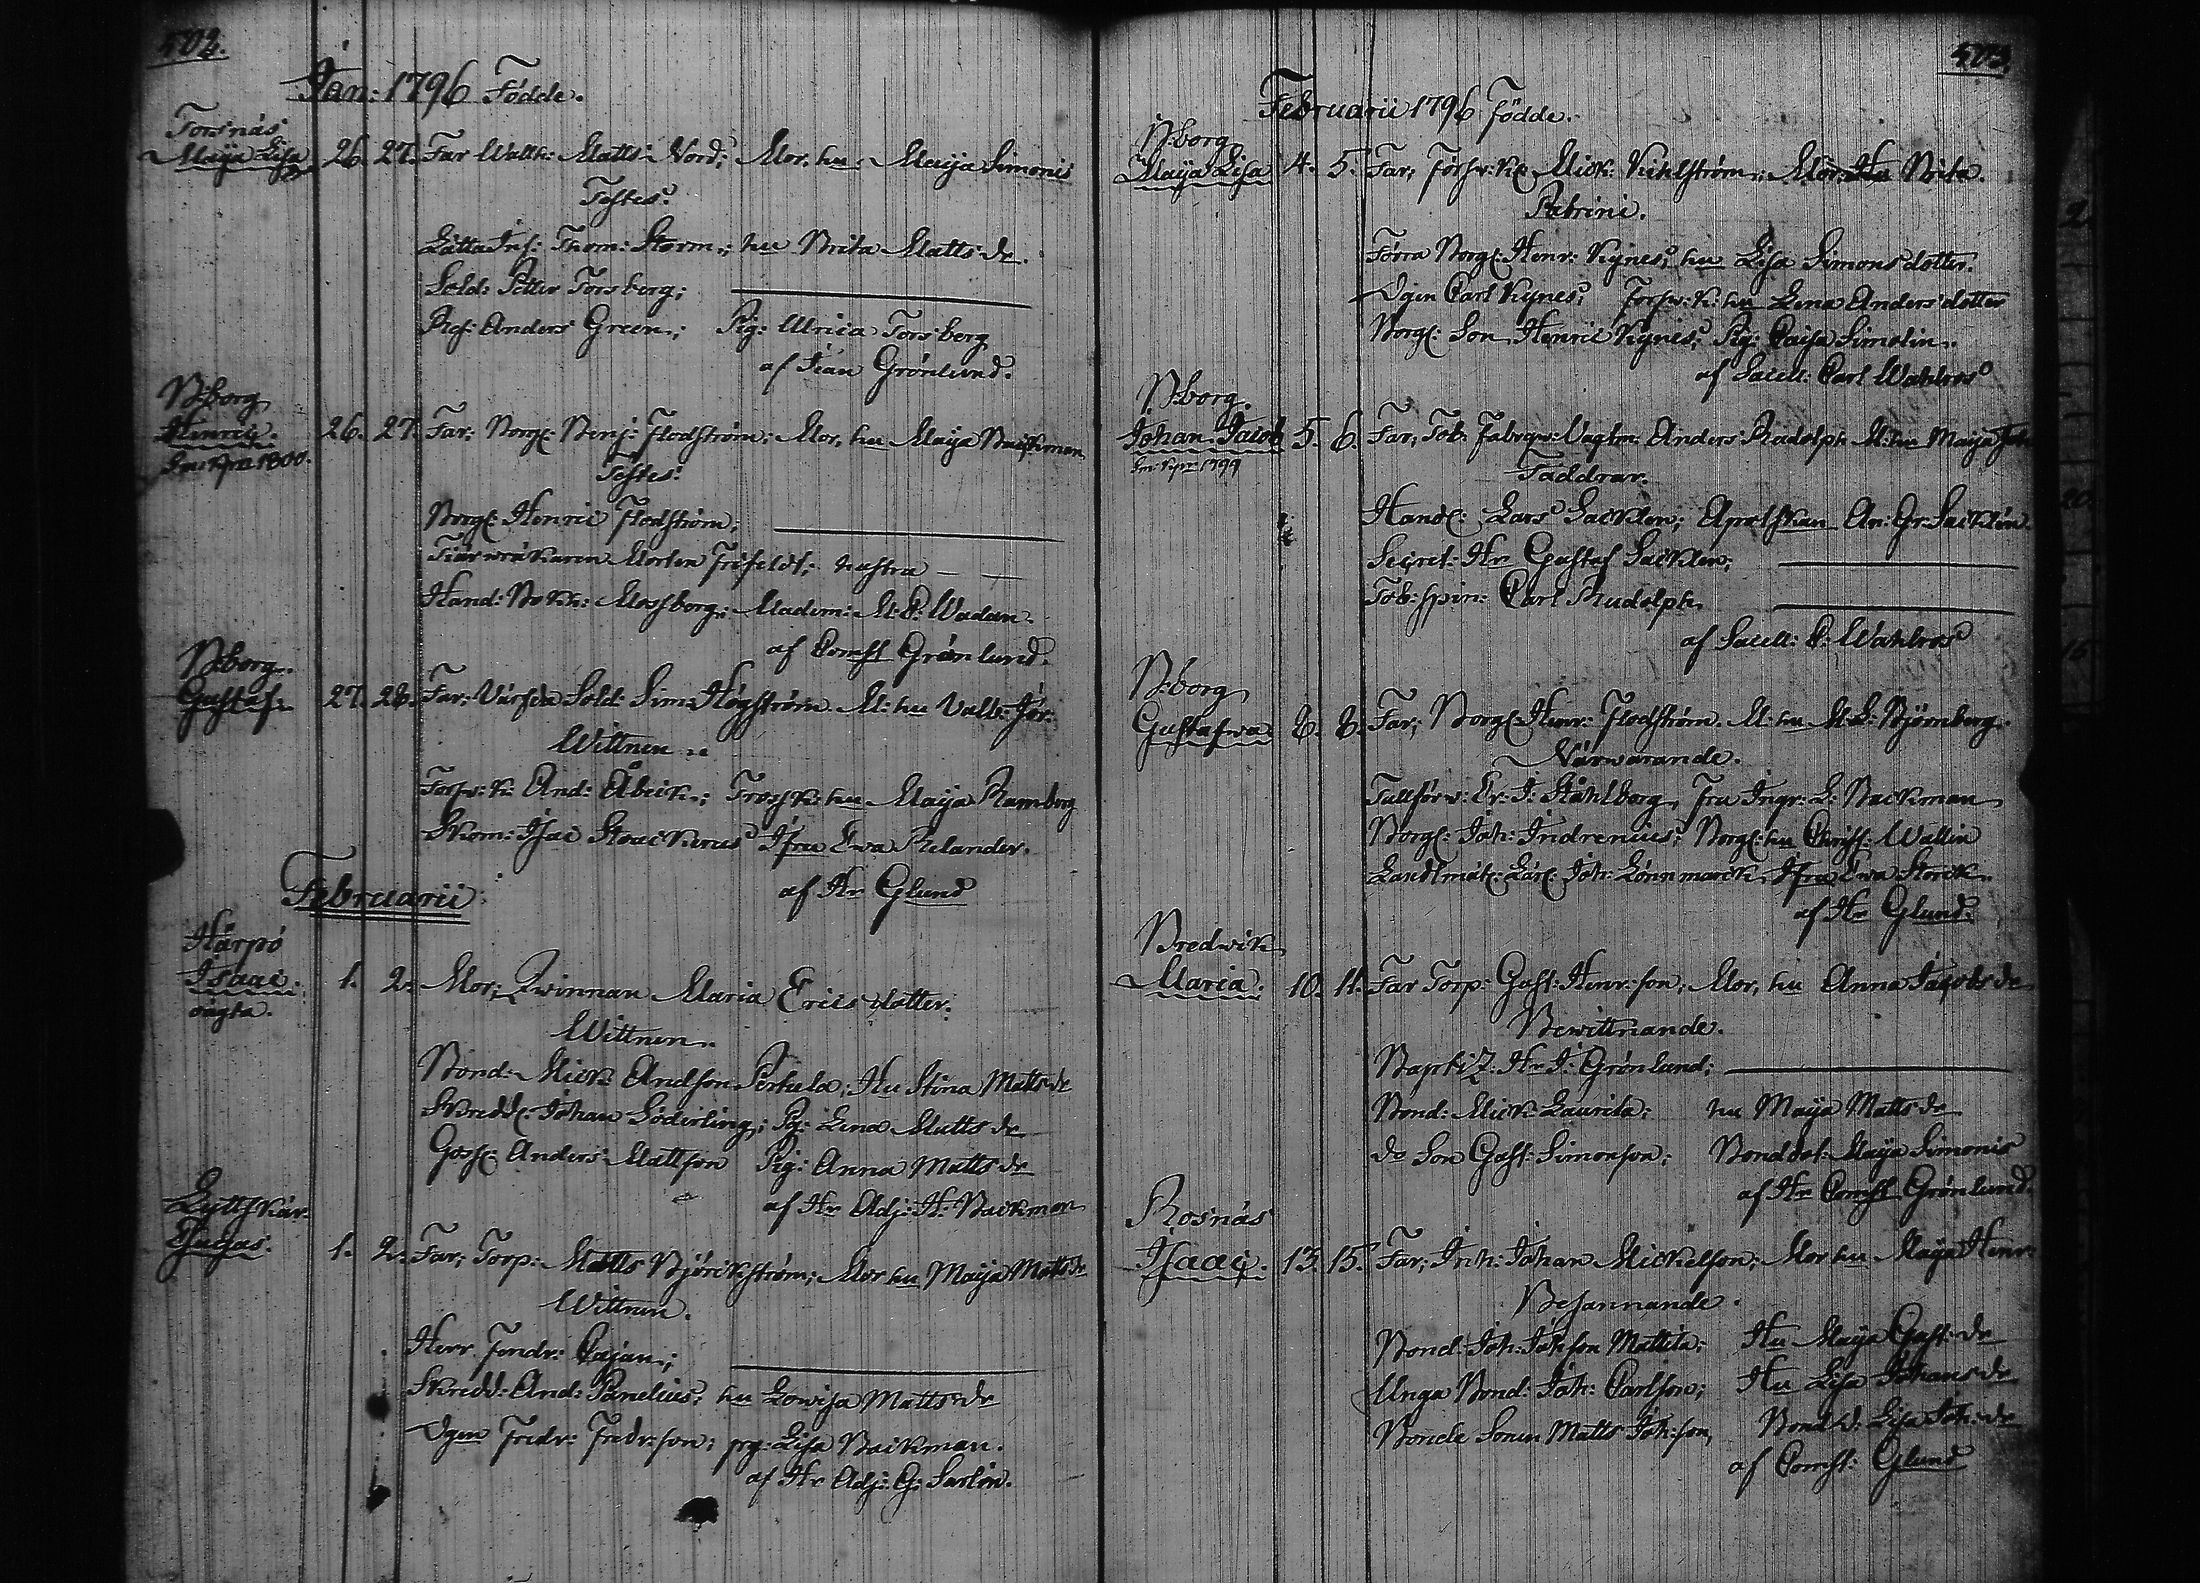 502.
Jan: 1796 Födde.
Torsnäs
Maija Lisa 26. 27. Far Wallk: Matts Nord; Mor, hu: Maija Simonis
Testes:
Båtta Inf: Thom: Storm; hu Brita Matts dr.
Sold: Petter Forsberg;
Anders Green; Pig: Ulrica Forsberg
af Grönlund.
N:borg
Henric. 26. 27. Far; Borg: Benj: Flodström; Mor, hu Maija Backman
1800.
Testes:
Borg: Henric Flodström;
Morten Frifeldt; hustru
Hand: Bokh: Mossberg; Madem: Wadan.
af Comst Grönlund.
N:borg.
Gustaf. 27. 28. Far; Sold: Sim: Högström. M: hu Valb: Jör:
Wittnen
Torsw: k: And: Åbeck; hu Maija Ramberg
Skom: Isac Jfru Ewa Relander.
af Hr Glund
Februarii
Härpö
Isaac. 1. 2. Mor; Qwinnan Maria Erics dotter.
oägta.
Wittnen
Bond: Mick: Andson Pertula; Hu Stina Matts dr
Skredd: Johan Söderling; Pig: Lena Matts dr
Goss: Anders Mattson Pig: Anna Matts dr
af Hr Adj: H: Backman
Lyttskär
1. 2. Far; Torp: Matts Björckström; Mor hu Maija Matts dr
Wittnen.
Herr Fendr: Cajan;
Skredd: And: Panelius; hu Lowisa Matts dr
Dgen Fredr: Fredrson; pig: Lisa Backman.
af Hr Adj: G: Sarlin.
503.
Februarii 1796 Födde.
N:borg
Maija Lisa 4. 5. Far; Forsw: K: Mick: Kihlström; Mor: Hu Brita.
Patrini.
Förra Borg: Henr: Kynes; hu Lisa Simons dotter.
Dgen Carl Kynes; Forsw: K: hu Lena Anders dotter
Borg: Son Henric Kynes; Pig: Caisa Simelin.
af Sacell: Carl Wahlros
N:borg.
Johan Jacob 5. 6. Far, Tob: Fabrqs: Anders Rudolph M: hu Maija Joh:
1799
Faddrar.
Hand: Lars Sacklen; An: Gr: Sacklén
Secret: Hr Gustaf Sacklen;
Tob: spin: Carl Rudolph
af Sacell: C: Wahlros
N:borg
Gustafwa 8. 8. Far; Borg: Henr: Flodström. M: hu Björnberg.
Närwarande.
Tullförw: Er: J: Ståhlberg, Fru Ingr: L: Backman
Borg: Joh: Indrenius; Borg: hu Christ: Wallin
Landtmät: Lär: Joh: Lönnmarck, Jfru Ewa Storck.
af Hr Glund.
Bredwik
Maria. 10. 11. Far Torp: Gust: Henr:son; Mor, hu Anna Jacobs dr
Bewittnande.
Baptiz: Hr J: Grönlund;
Bond: Mick: Laurila; hu Maija Matts dr
do Son Gust: Simonson; Bond dot: Maija Simonis
af Hr Comst Grönlund.
Rosnäs
Isaac. 13. 15. Far; Inh: Johan Mickelson; Mor hu Maija Henr:
Bejannande.
Bond: Joh: Johson Mattila; Hu Maija Gust: dr
Unga Bond: Joh: Carlson; Hu Lisa Johans dr
Bonde Sonen Matts Joh:son, Bond d: Lisa Joh: dr
af Comst: Glund